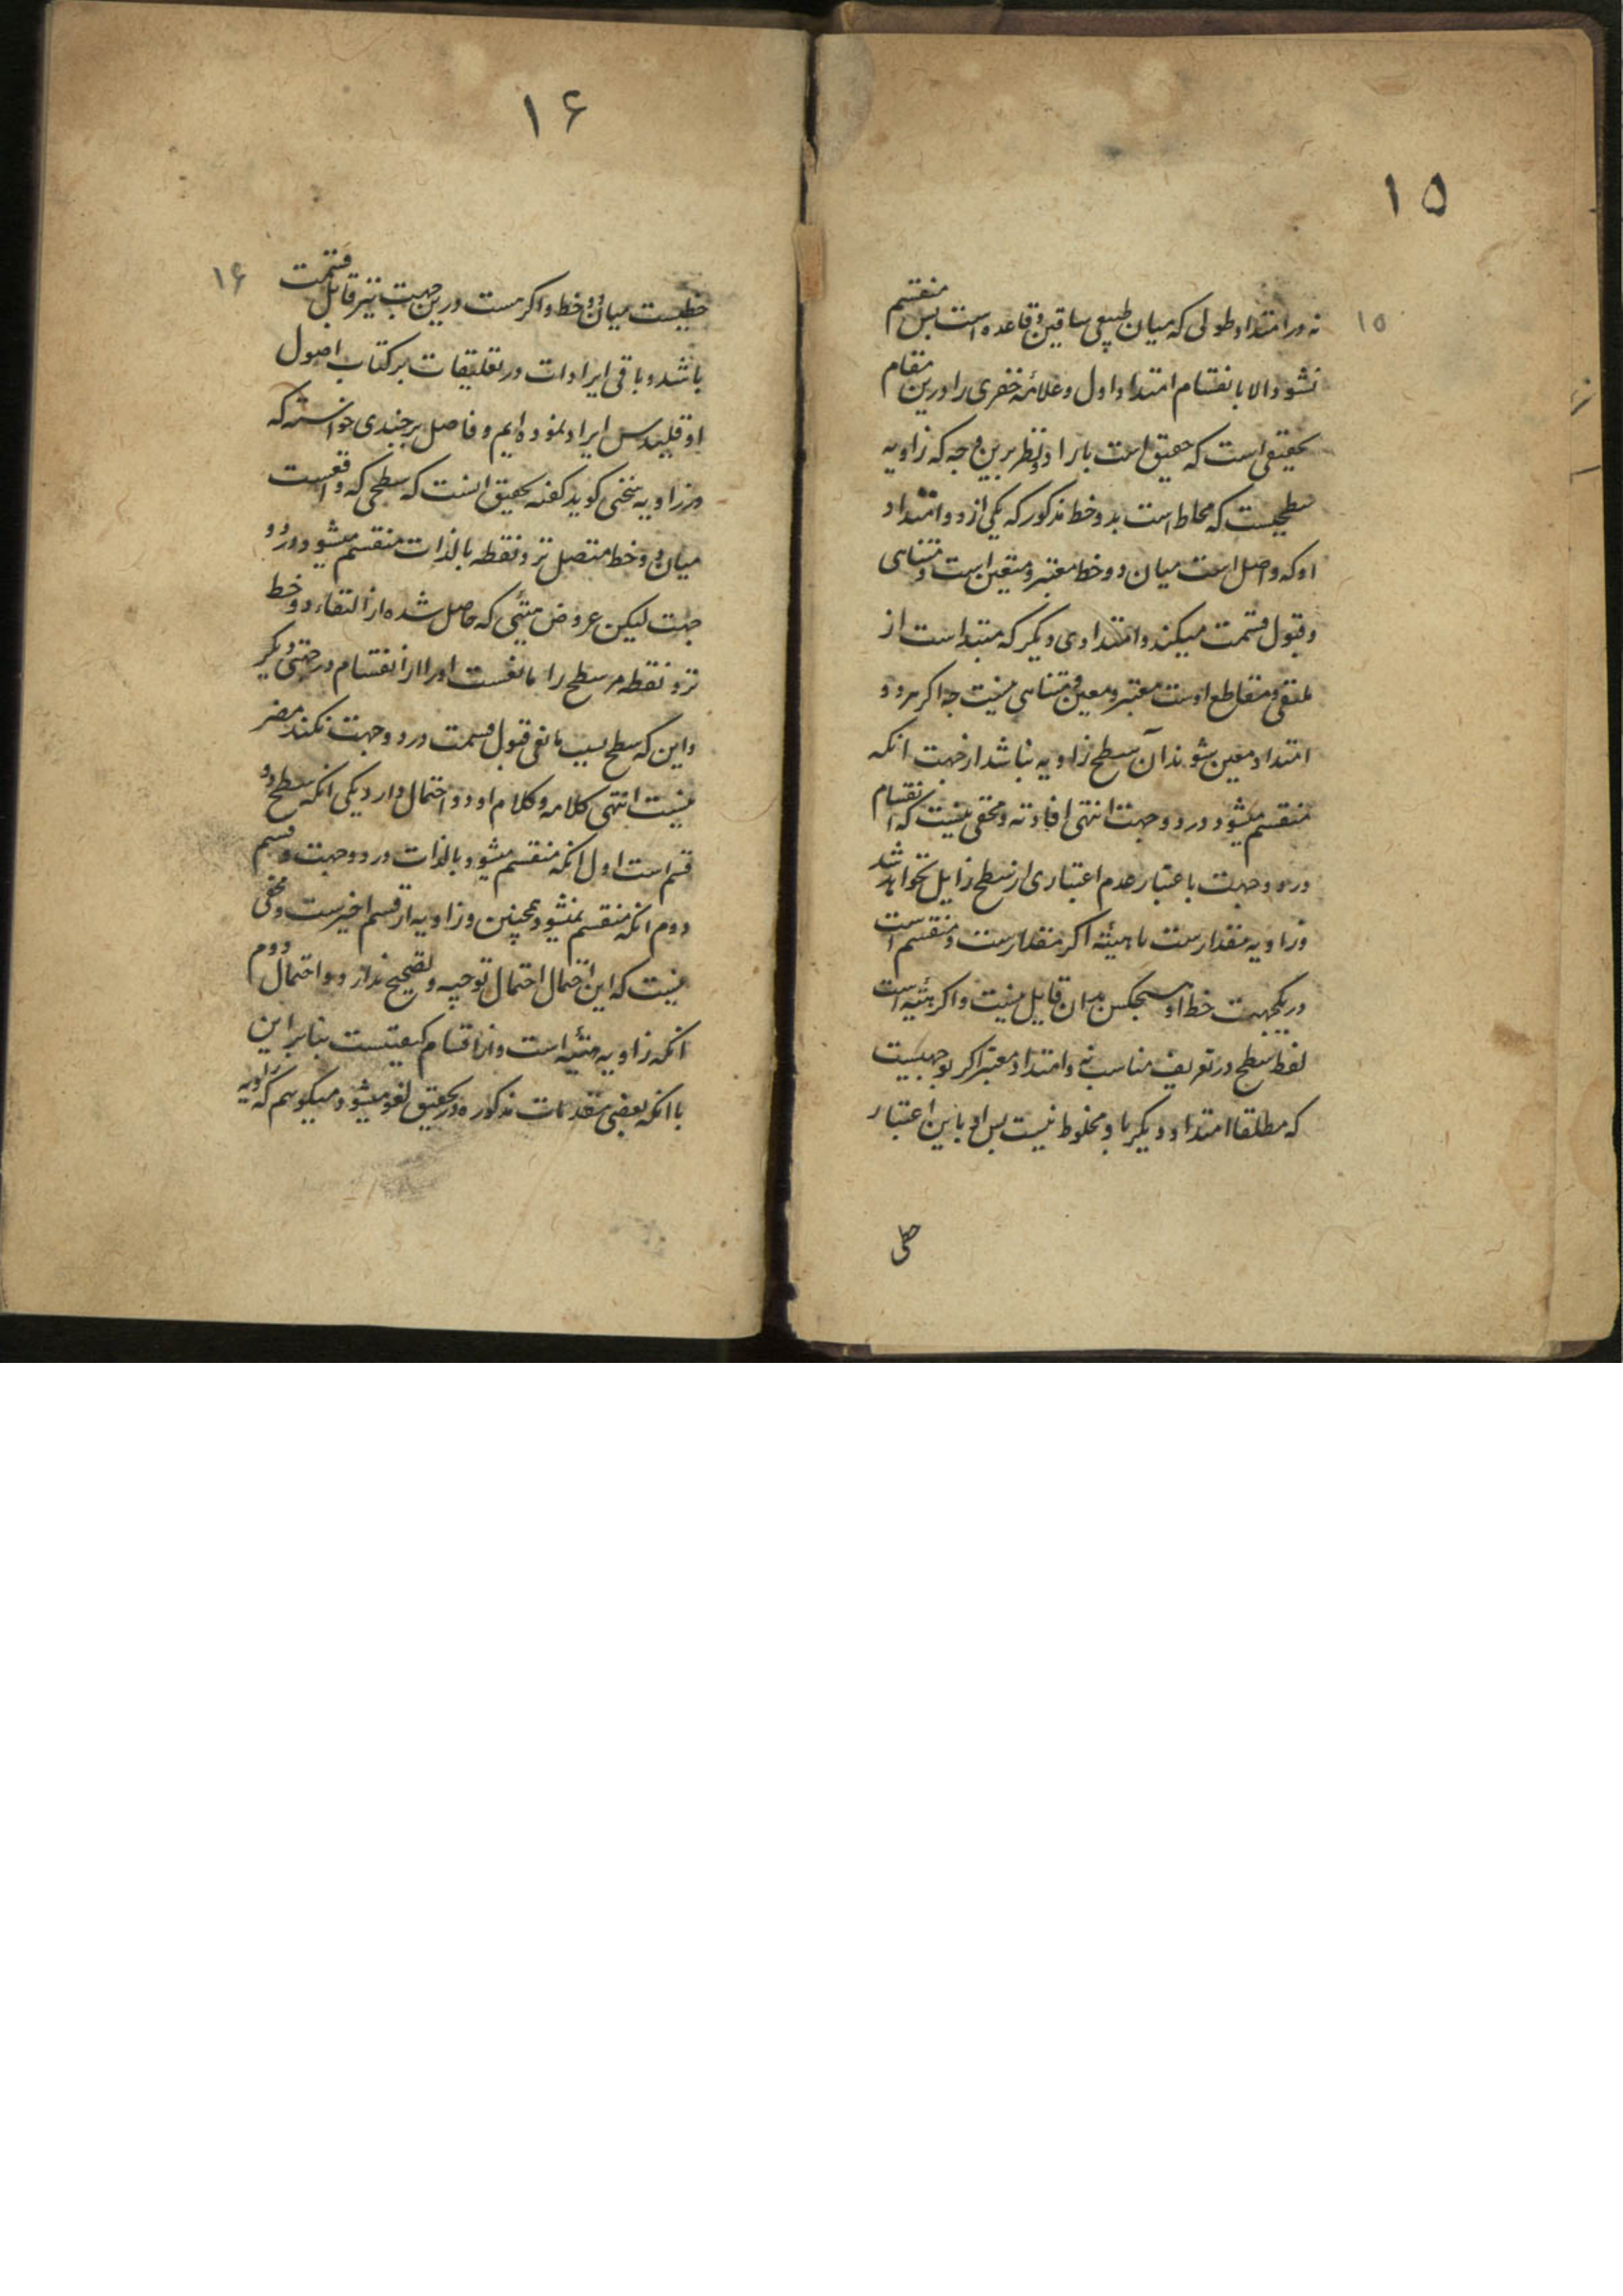 ۱۵
۱۵
نه در امتداد طولی که میان ملتقی ساقین و قاعده است پس منقسم
نشود الا بانقسام امتداد اول و علامه خفری را درین مقام
تحقیقی است که حقیق است بایراد و نظر برین وجه که زاویه
سطحیست که محاط است بدو خط مذکور که یکی از دو امتداد
او که واصل است میان دو خط معتبر و متعین است و متناهی
و قبول قسمت میکند و امتدادی دیگر که مبتدا است از
ملتقی و متقاطع اوست معتبر و معین و متناهی نیست چه اگر هر دو
امتداد معین شوند آن سطح زاویه نباشد از جهت انکه
منقسم میشود در دو جهت انتهی افادته و مخفی نیست که انقسام
در دو جهت باعتبار عدم اعتباری از سطح زایل نخواهد شد
و زاویه مقدارست یا هیئه اگر مقدارست و منقسم است
در یکجهت خط او هیچکس بدان قایل نیست و اگر هیئه است
لفظ سطح در تعریف مناسب نه و امتداد معتبر اگر بوجهیست
که مطلقا امتداد دیگر با و مخلوط نیست پس او باین اعتبار
خطی
۱۶
۱۶
خطیست میان دو خط و اگر هست درین جهت نیز قابل قسمت
باشد و باقی ایرادات در تعلیقات بر کتاب اصول
اوقلیدس ایراد نموده ایم و فاضل بیرجندی خواسته که
در زاویه سخنی گوید گفته تحقیق انست که سطحی که واقعست
میان دو خط متصل نزد نقطه بالذات منقسم میشود در دو
جهت لیکن عروض هیئی که حاصل شده از التقاء دو خط
نزد نقطه مر سطح را مانعست او را از انقسام در جهتی دیگر
و این که سطح بسبب مانعی قبول قسمت در دو جهت نکند مضر
نیست انتهی کلامه و کلام او دو احتمال دارد یکی انکه سطح دو
قسم است اول انکه منقسم میشود بالذات در دو جهت و قسم
دوم انکه منقسم نمیشود همچنین و زاویه از قسم اخیرست و مخفی
نیست که این احتمال احتمال توجیه و تصحیح ندارد و احتمال دوم
انکه زاویه هیئه است و از اقسام کیفیتست بنابر این
با انکه بعضی مقدمات مذکوره در تحقیق لغو میشود میگویم که زاویه